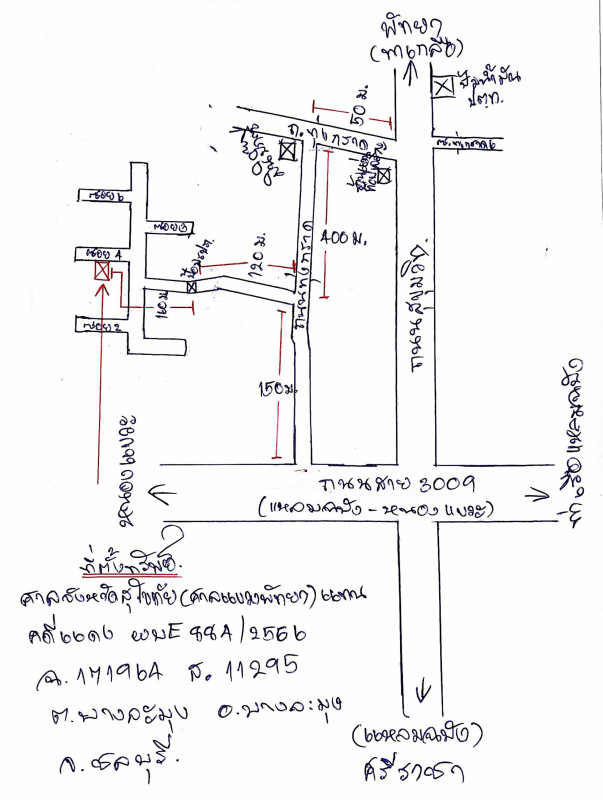 พัทยา
(นาเกลือ)
ปั๊มน้ำมัน
ปตท.
50 ม.
ถ.ทุ่งกราด
400 ม.
ถนนทุ่งกราด
ถนนสุขุมวิท
ซอย 6
ซอย 3
ซอย 4
ซอย 2
ป้อมรปภ.
120 ม.
160 ม.
150 ม.
หนองแขวะ
ถนนสาย 3009
(แหลมฉบัง - หนองแขวะ)
ท่าเรือแหลมฉบัง
ที่ตั้งทรัพย์
ศาลจังหวัด (ศาลแขวงพัทยา) แทน
คดีแดง ผบE 884/2566
ฉ. 171964 ส. 11295
ต.บางละมุง อ.บางละมุง
จ.ชลบุรี.
(แหลมฉบัง)
ศรีราชา